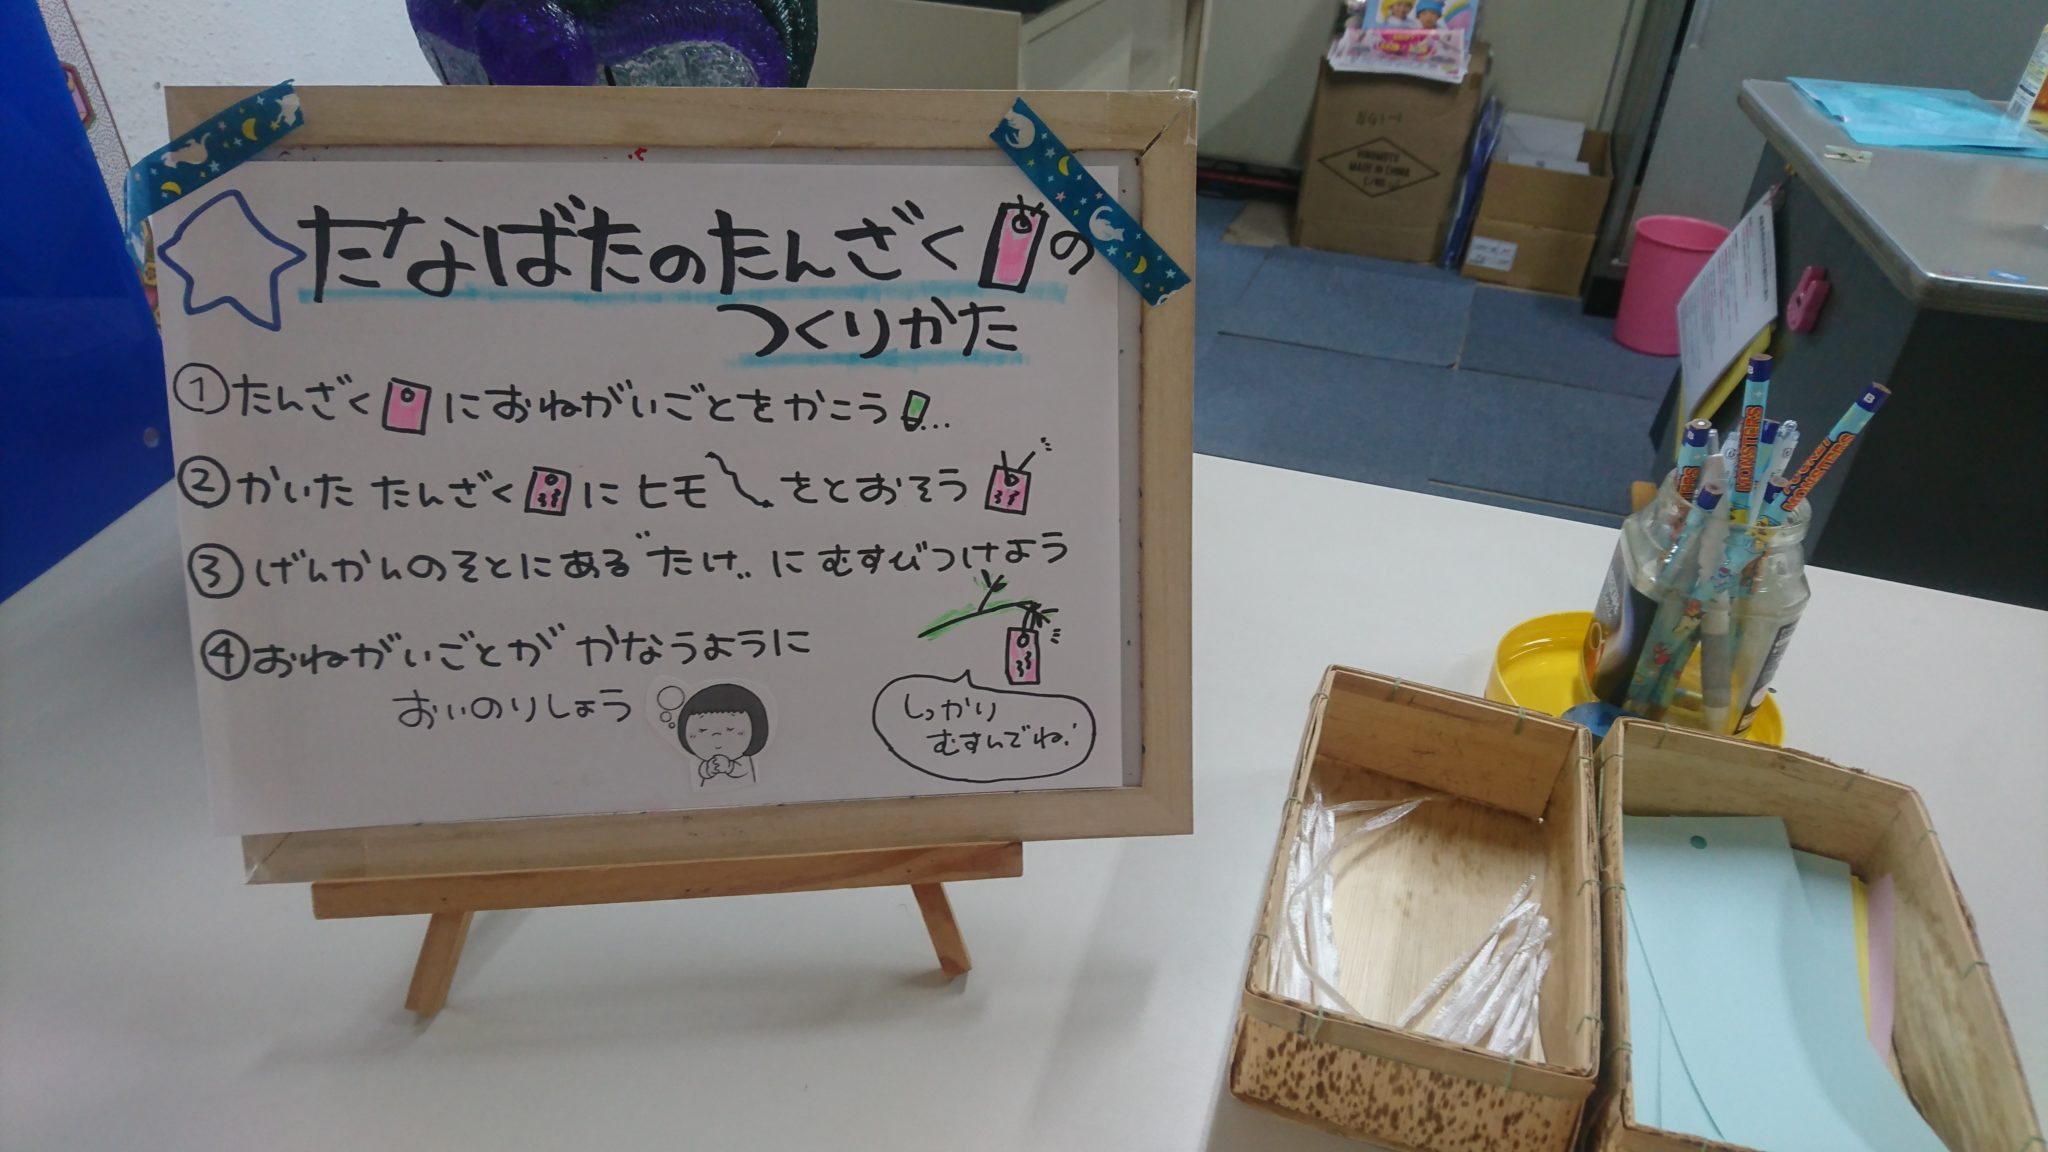 たなばたのたんざくの
つくりかた
①たんざくにおねがいごとをかこう...
②かいた たんざくにヒモをとおそう
③げんかんのそとにある"たけ"にむすびつけよう
④おねがいごとが かなうように
おいのりしょう
しっかり
むすんでね!
MADE IN CHINA
C/NO.
B
MONSTERS
B
MONSTERS
B